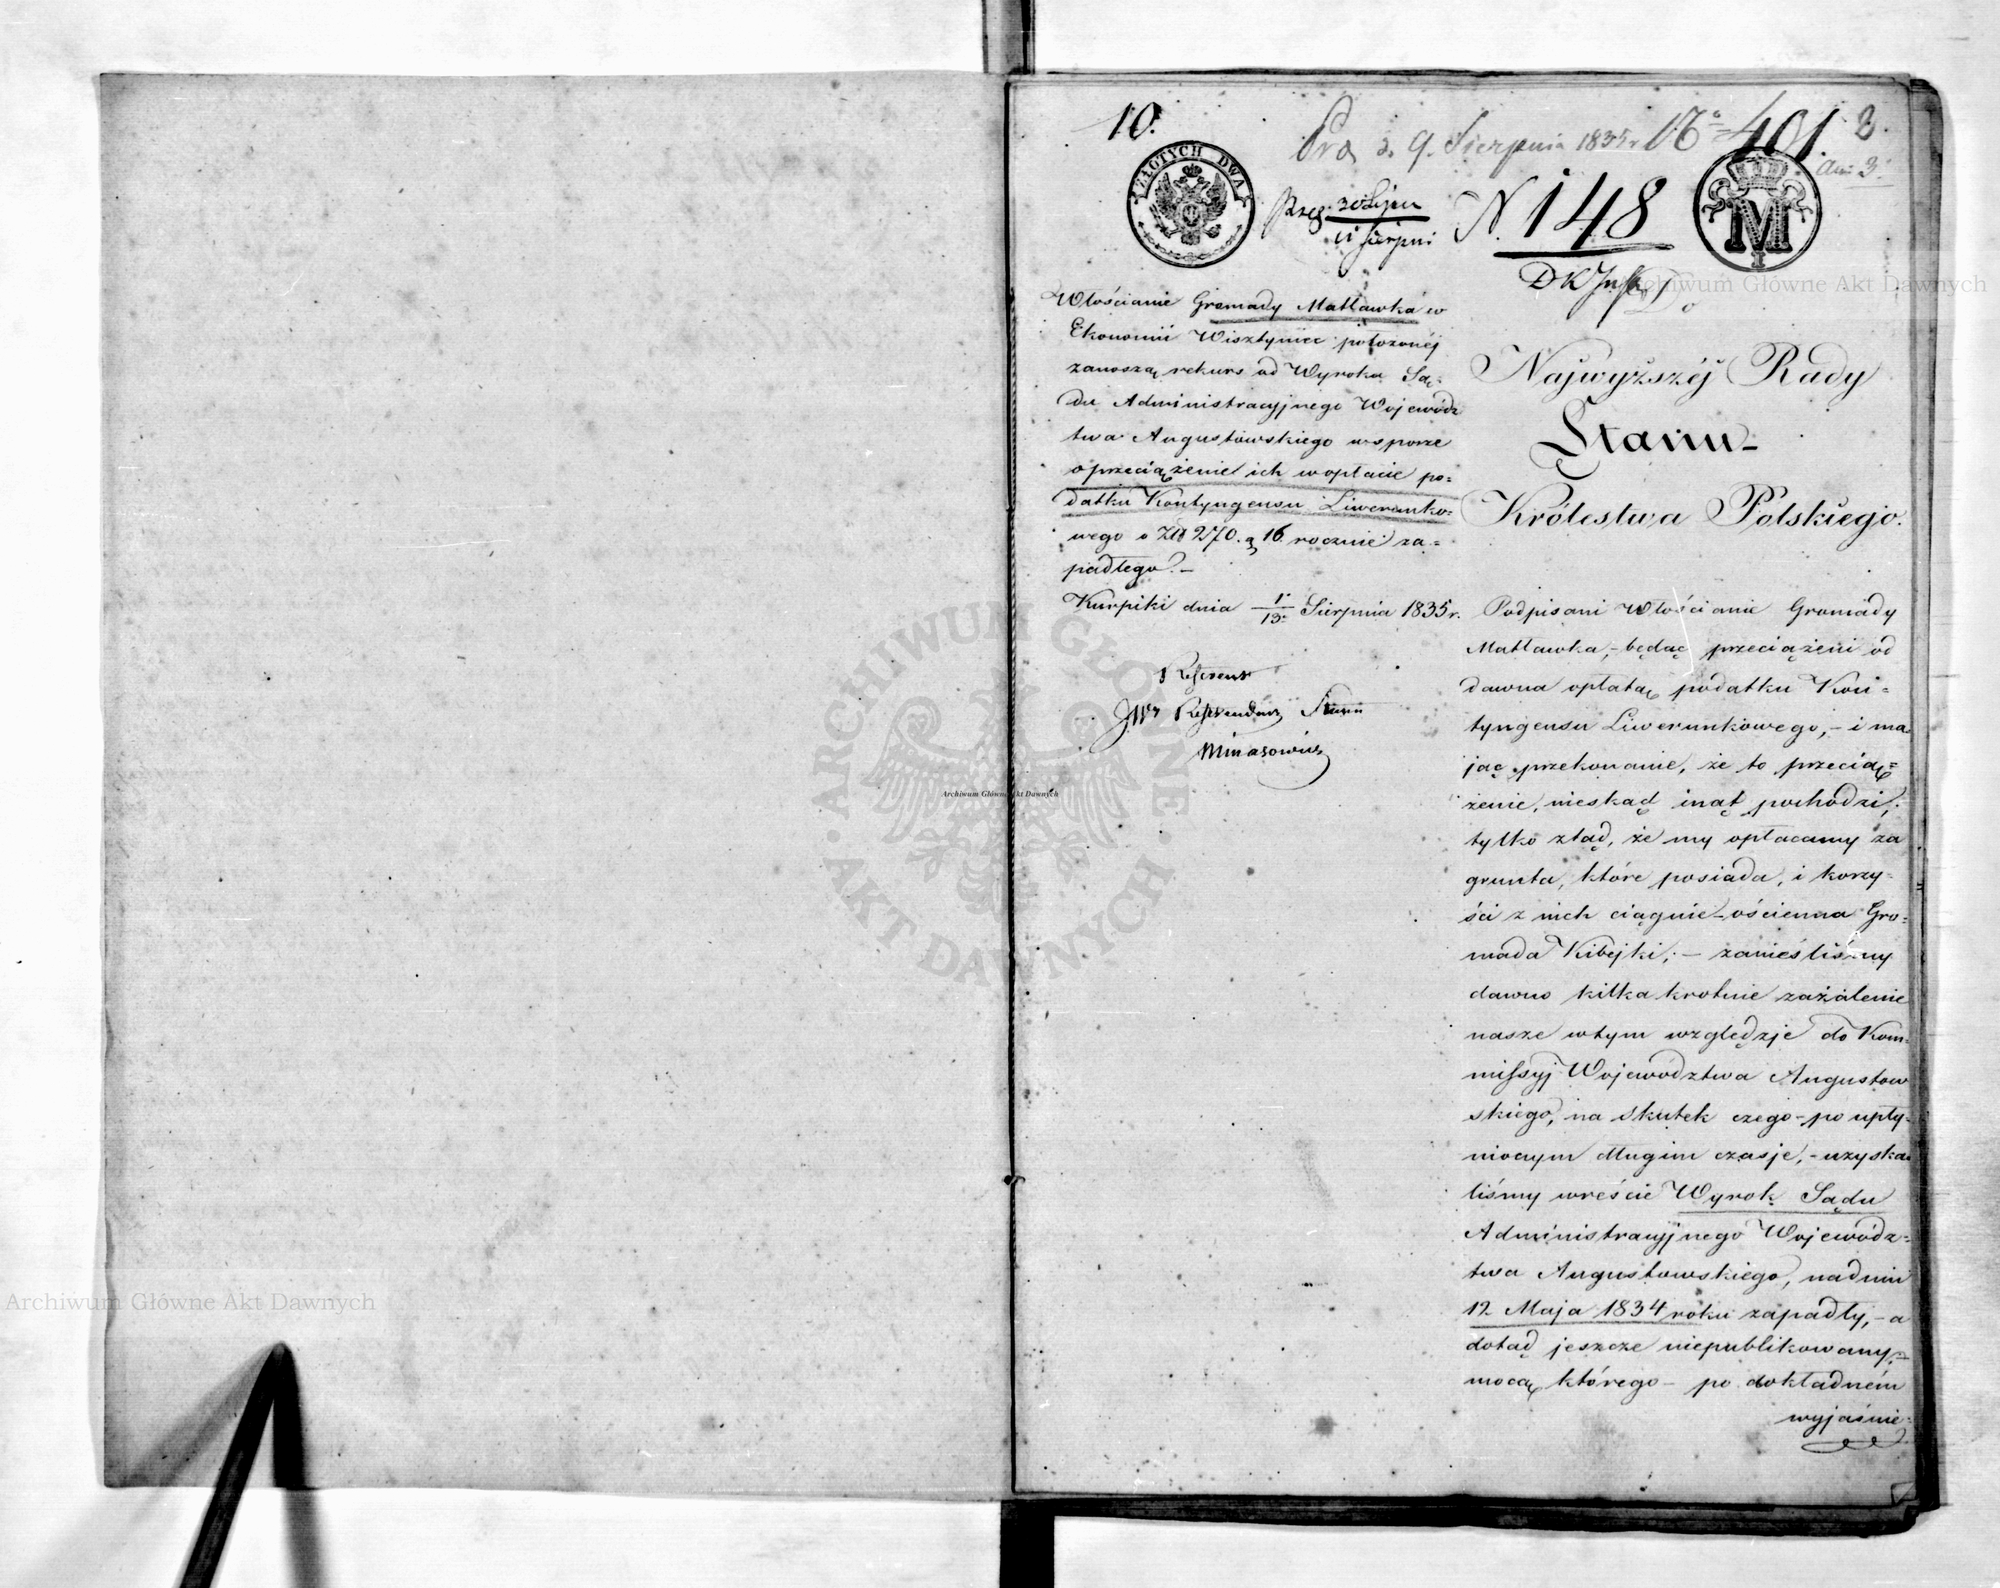 10.
Prz. d. 9. Sierpnia 1835 r. No 401. 2.
ZŁOTYCH DWA
N. 148
M
I
Włościanie Gromady Matławka w
Ekonomii Wisztyniec położonéj
zanoszą rekurs od Wyroku Są-
du Administracyjnego Wojewódz
twa Augustowskiego w sporze
o przeciążenie ich w opłacie po-
datku Kontyngensu Liwerunko-
wego o Zł 270. g 16 rocznie za-
padłego. -
Kurpiki dnia 1/13 Sierpnia 1835 r.
Referent
JW Referendarz Stanu
Minasowicz
Najwyższéj Rady
Stanu
Królestwa Polskiego.
Podpisani Włościanie Gromady
Matławka, - będąc przeciążeni od
dawna opłatą podatku Kon-
tyngensu Liwerunkowego, - i ma-
jąc przekonanie, że to przecią-
żenie, nieskąd inąd pochodzi,
tylko ztąd, że my opłacamy za
grunta, które posiada, i korzy-
ści z nich ciągnie ościenna Gro-
mada Kibejki; - zanieśliśmy
dawno kilkakrotnie zażalenie
nasze wtym względzje do Kom-
missyj Województwa Augustow
skiego, na skutek czego - po upły-
nionym długim czasje, - uzyska-
liśmy wreście Wyrok Sądu
Administracyjnego Wojewódz-
twa Augustowskiego, nadniu
12 Maja 1834 roku zapadły, - a
dotąd jeszcze niepublikowany, -
mocą którego - po dokładném
wyjaśnie-
ARCHIWUM GŁÓWNE · AKT DAWNYCH ·
Archiwum Główne Akt Dawnych
Archiwum Główne Akt Dawnych
Archiwum Główne Akt Dawnych